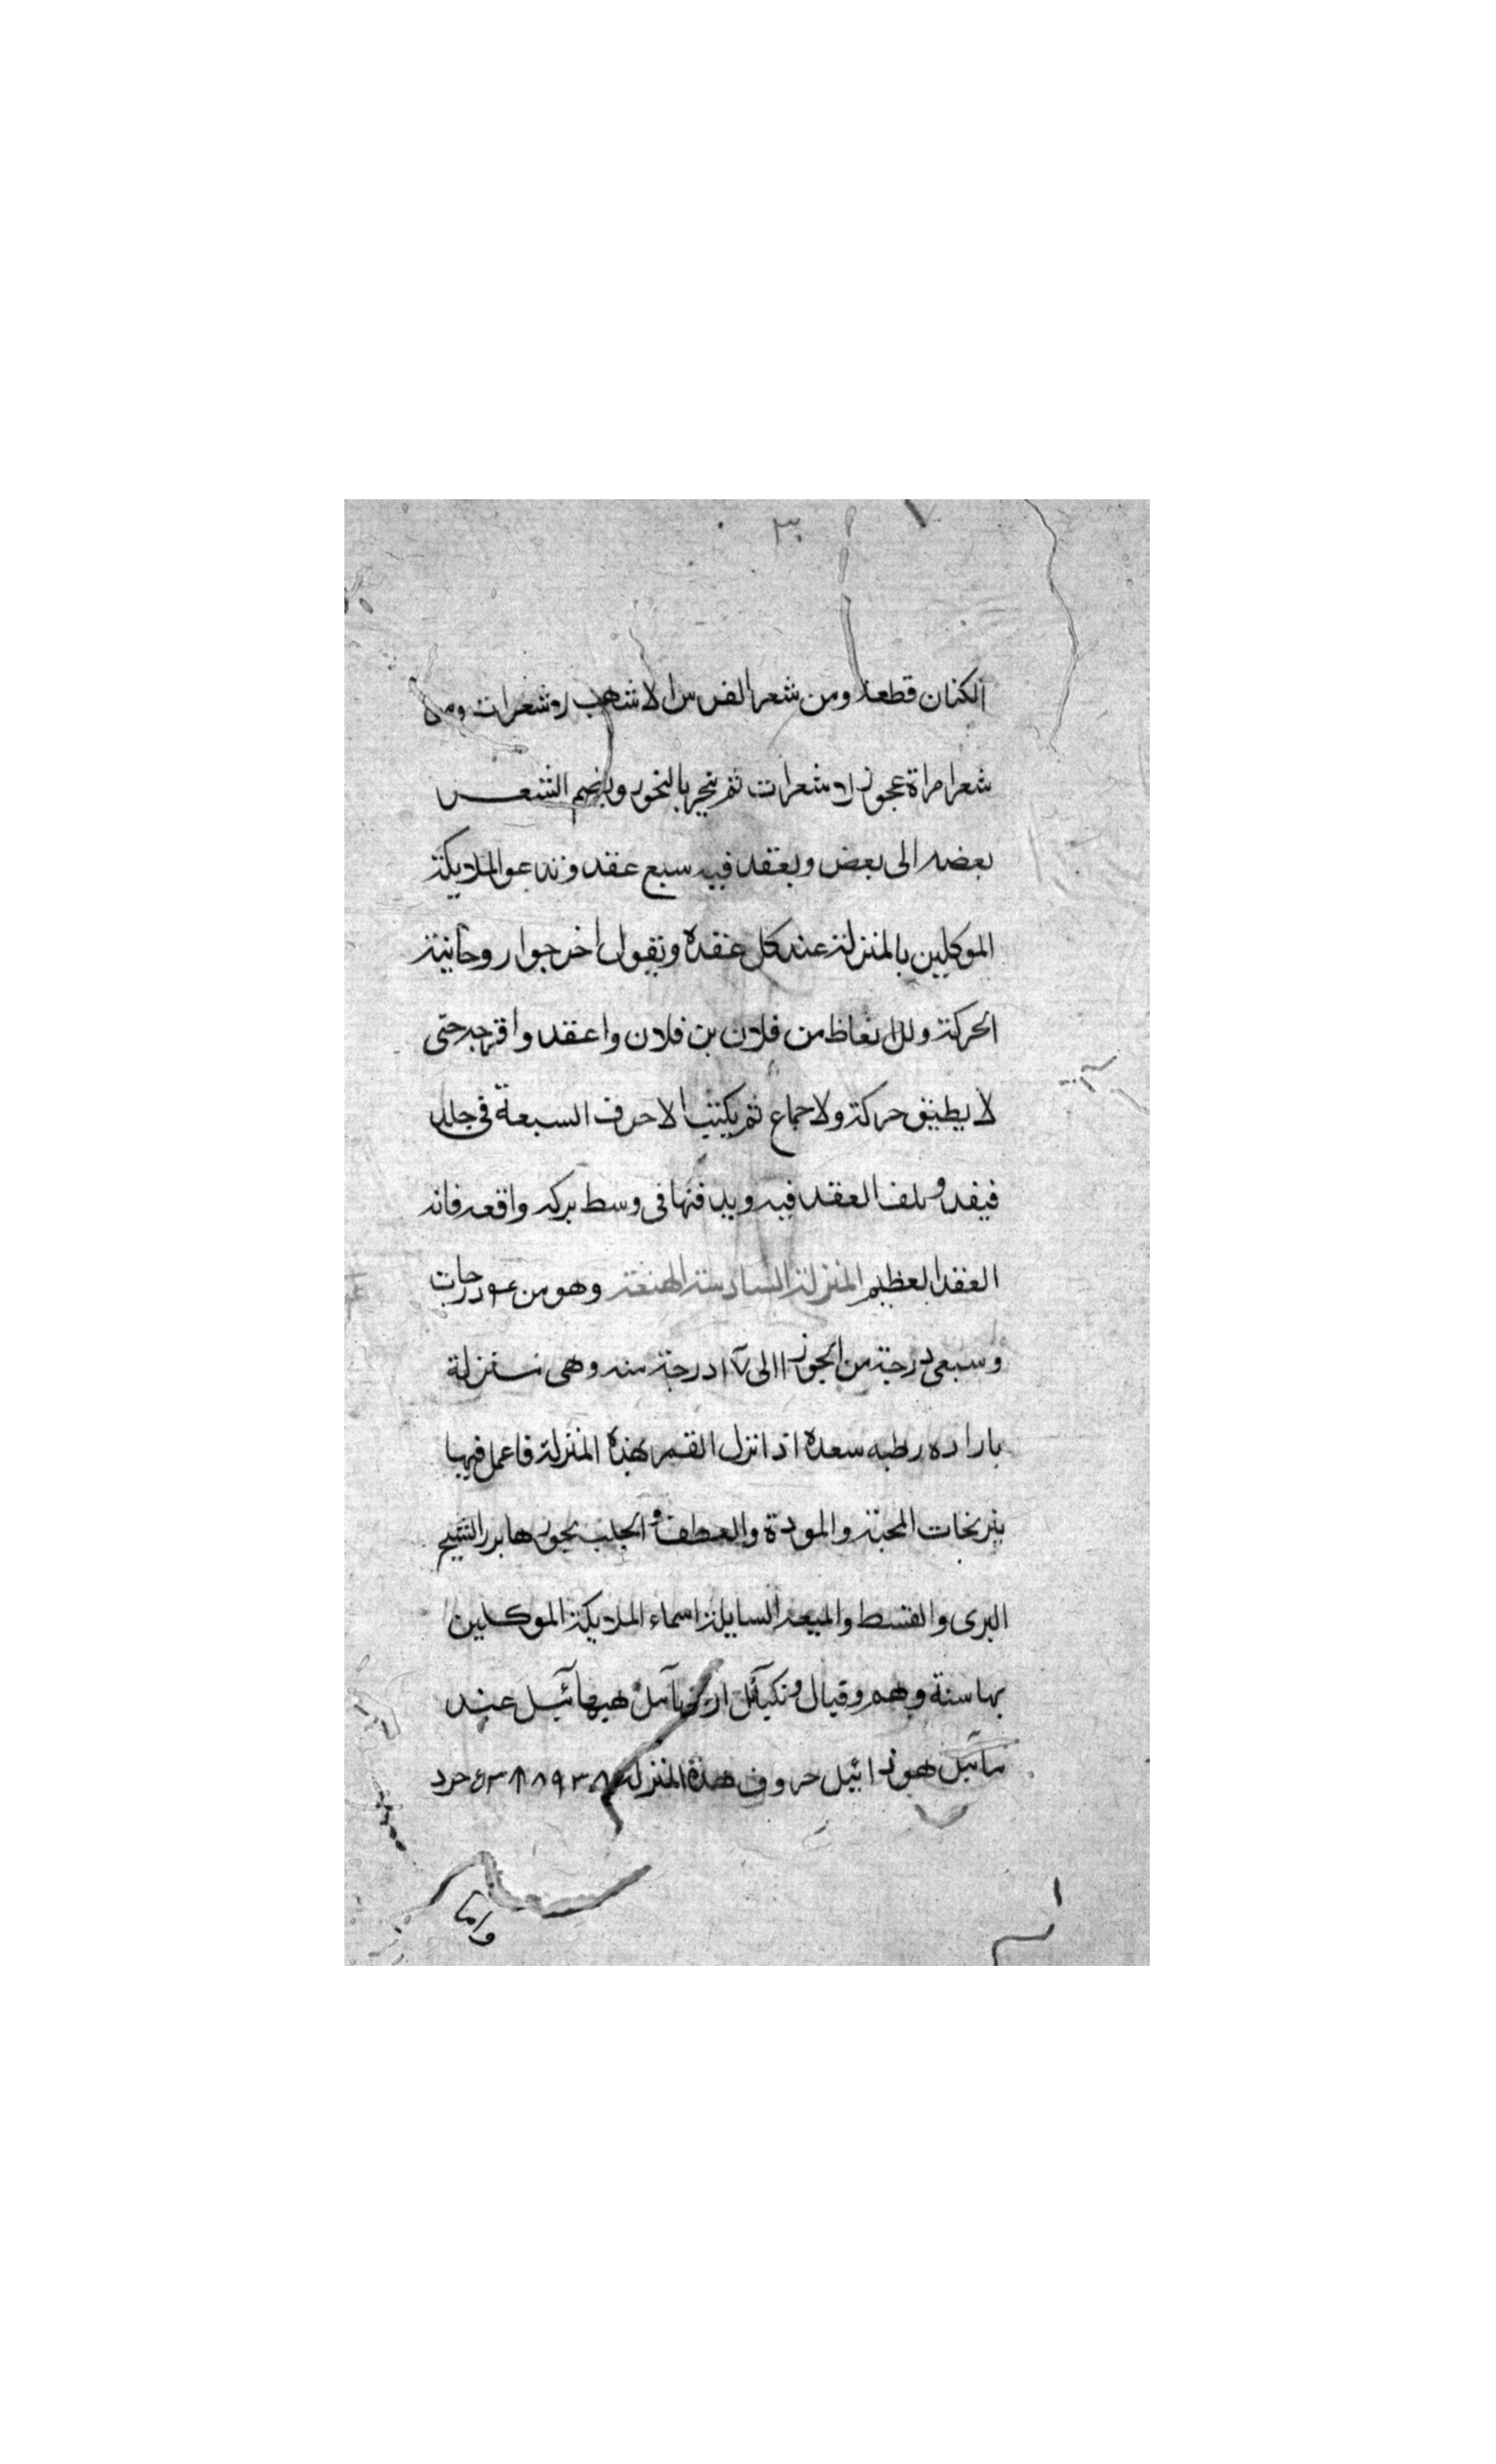 ٣٠
الكتان قطعة ومن شعر الفرس الاشهب شعرات ومن
شعر امراة عجوز لا شعرات ثم يبخر بالبخور ويضم الشعر
بعضه الى بعض ويعقد فيه سبع عقد وتدعو الملايكة
الموكلين بالمنزلة عند كل عقدة وتقول اخرجوا روحانية
الحركة والانعاظ من فلان بن فلان واعقدوا فرجه حتى
لا يطيق حركة ولا جماع ثم يكتب الاحرف السبعة في جلد
ويلف العقد فيه ويدفنها في وسط بركه واقعه فانه
العقد العظيم المنزلة السادسة الهنعة وهو من درجات
وسبعى درجة من الجوزا الى درجة منه وهى منزلة
بارده رطبه سعدة اذا نزل القمر بهذه المنزلة فاعمل فيها
نيرنجات المحبة والمودة والعطف والجلب بخورها بزر الشيح
البرى والقسط والميعه السايلة اسماء الملايكة الموكلين
بها ستة وهم وقيال ونكيائل هيهائيل
هوزائيل حروف هذه المنزلة
واما